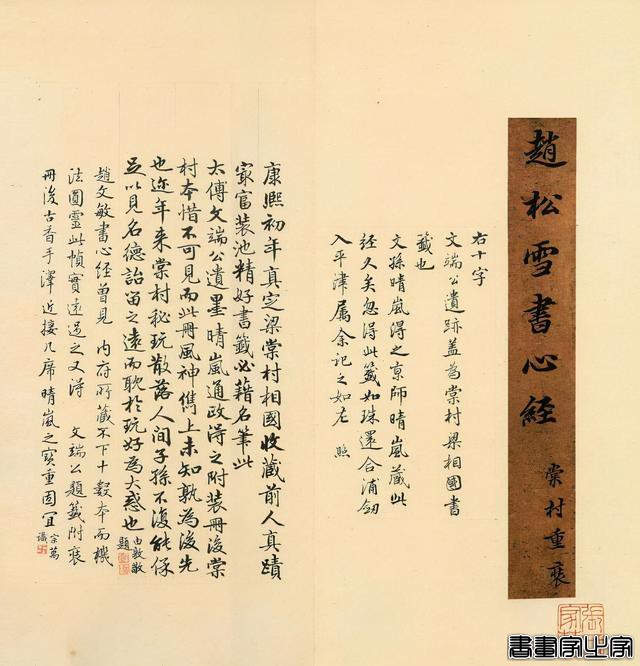 趙松雪書心經
棠村重裝
右十字
文端公遺跡蓋為棠村梁相國書
籤也
文孫晴嵐得之京師晴嵐藏此
經久矣忽得此籤如珠還合浦劍
入平津屬余記之如左 照
康熙初年真定梁棠村相國收藏前人真蹟
㝡富裝池精好書籤必藉名筆此
太傅文端公遺墨晴嵐通政得之附裝冊後棠
村本惜不可見而此冊風神雋上未知孰為後先
也近年來棠村秘玩散落人間子孫不復能保
足以見名德詒留之遠而耽於玩好為大惑也 由敦敬
題
趙文敏書心經曾見 內府所藏不下十數本而機
法圓靈此幀實遠過之又得 文端公題籤附裝
冊後古香手澤近接几席晴嵐之寶重固宜 宗萬
識
書畫家出字